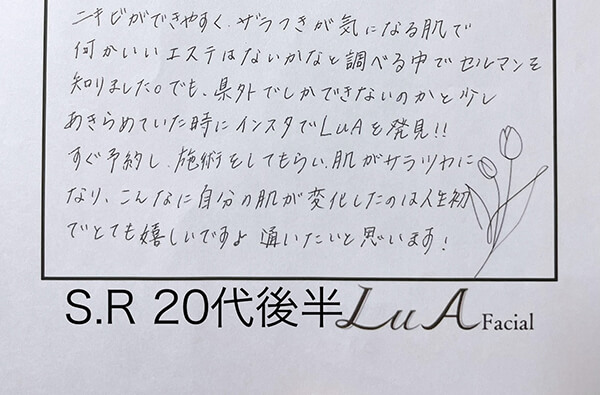 ニキビができやすく、ザラつきが気になる肌で
何かいいエステはないかなと調べる中でセルマンを
知りました。でも、県外でしかできないのかと少し
あきらめていた時にインスタでLuAを発見!!
すぐ予約し、施術をしてもらい、肌がサラツヤに
なり、こんなに自分の肌が変化したのは人生初
でとても嬉しいですよ 通いたいと思います!
S.R 20代後半 LuA Facial